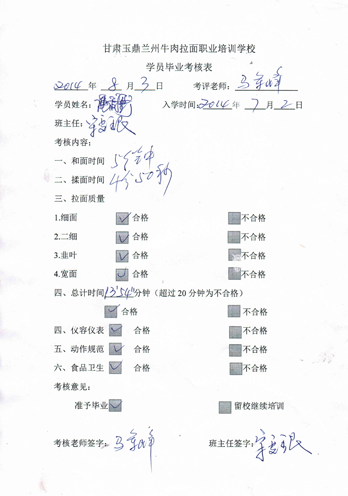 甘肃玉鼎兰州牛肉拉面职业培训学校
学员毕业考核表
2014 年 8 月 3 日 考评老师:
学员姓名: 入学时间:2014 年 7 月 2 日
班主任:
考核内容:
一、和面时间 5分钟
二、揉面时间 4分50秒
三、拉面质量
1.细面 ☑ 合格 不合格
2.二细 ☑ 合格 不合格
3.韭叶 ☑ 合格 不合格
4.宽面 ☑ 合格 不合格
四、总计时间13'54"分钟(超过 20 分钟为不合格)
☑ 合格 不合格
四、仪容仪表 ☑ 合格 不合格
五、动作规范 ☑ 合格 不合格
六、食品卫生 ☑ 合格 不合格
考核意见:
准予毕业 ☑ 留校继续培训
考核老师签字: 班主任签字: